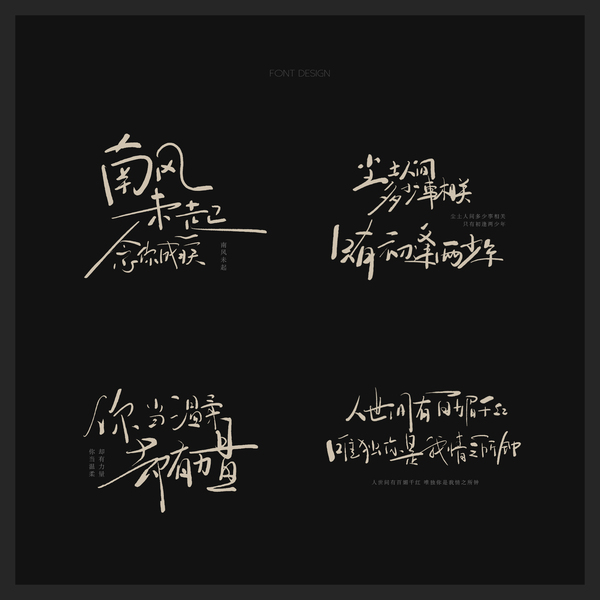 FONT DESIGN
南风
未起
念你成疾
南风未起
尘土人间
多少事相关
尘土人间多少事相关
只有初逢两少年
只有初逢两少年
你当温柔
却有力量
却有力量
你当温柔
人世间有百媚千红
唯独你是我情之所钟
人世间有百媚千红 唯独你是我情之所钟